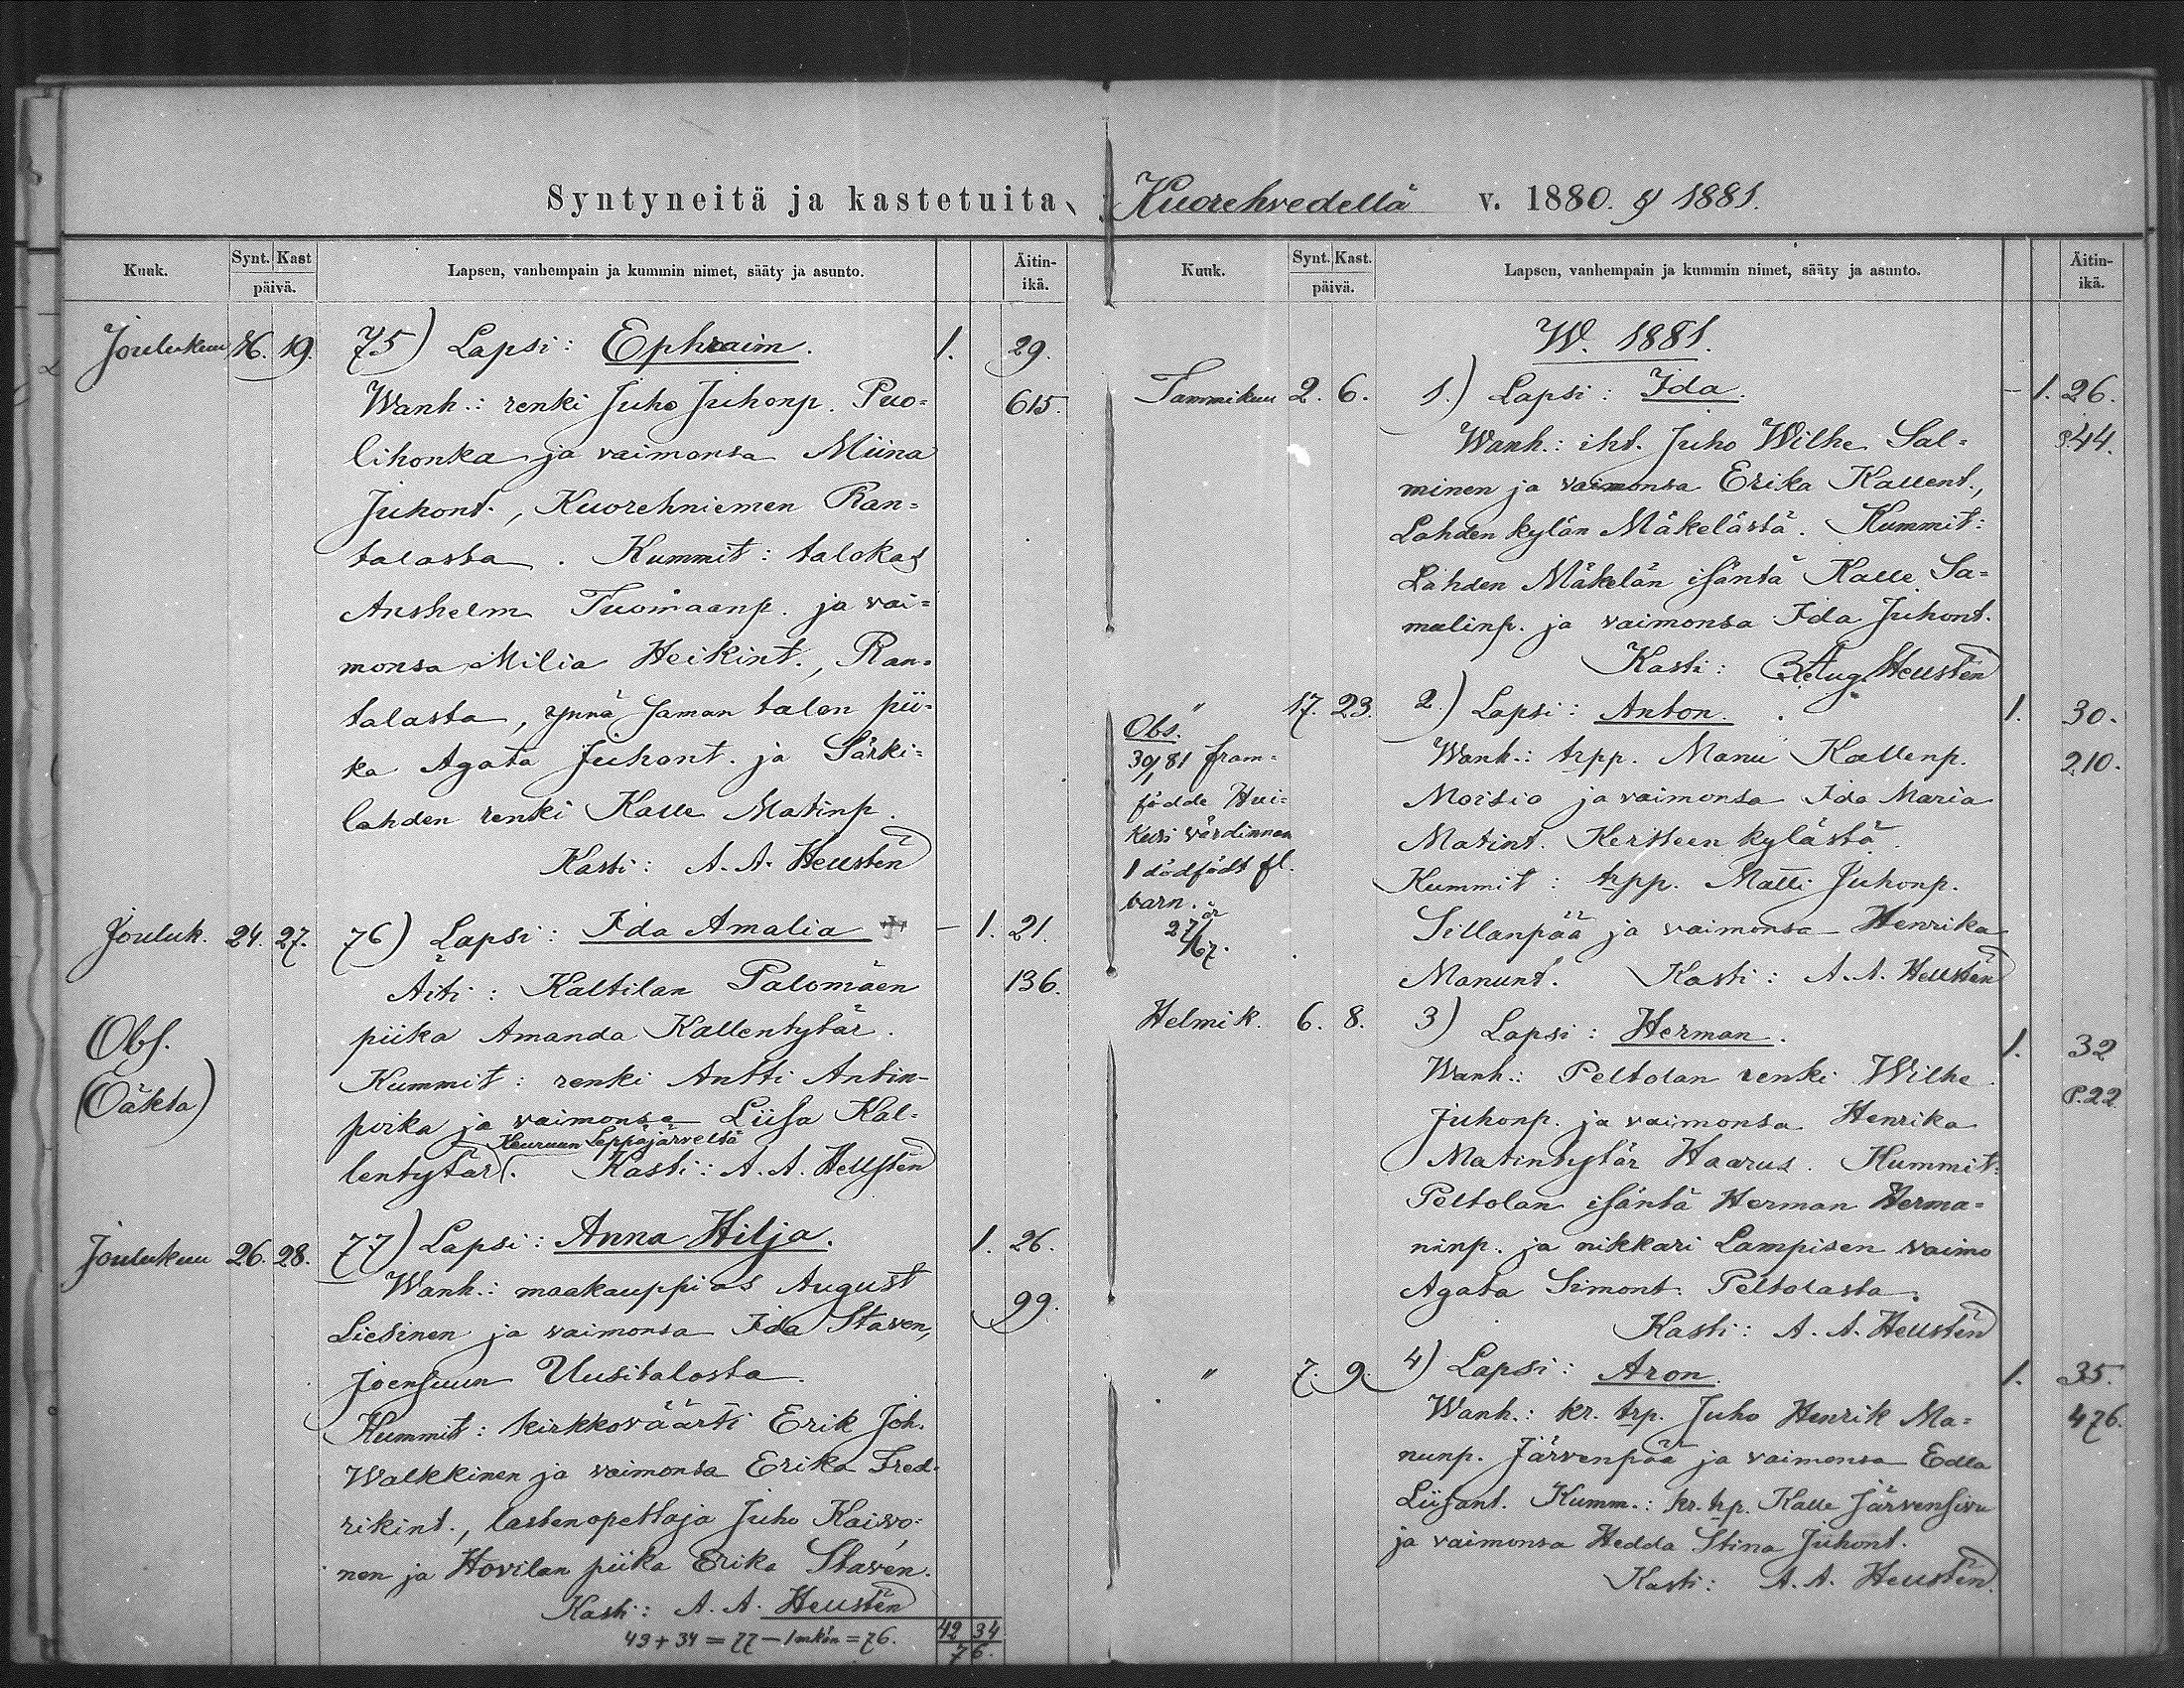 Syntyneitä ja kastetuita, Kuorehvedellä v. 1880. & 1881.
Kuuk. Synt. Kast päivä. Lapsen, vanhempain ja kummin nimet, sääty ja asunto. Äitin-ikä.
Joulukuu 16. 19. 75) Lapsi: Ephraim. 1. 29.
Wanh.: renki Juho Juhonp. Puo= 615.
lihonka ja vaimonsa Miina
Juhont., Kuorehniemen Ran=
talasta. Kummit: talokas
Anshelm Tuomaanp. ja vai=
monsa Milia Heikint., Ran=
talasta, ynnä saman talon pii=
ka Agata Juhont. ja Särki=
lahden renki Kalle Matinp.
Kasti: A. A. Hellstén
Jouluk. 24. 27. 76) Lapsi: Ida Amalia - 1. 21.
Äiti: Kaltilan Palomäen 136.
Obs. piika Amanda Kallentytär.
(Oäkta) Kummit: renki Antti Antin-
poika ja vaimonsa Liisa Kal-
Keuruun Leppäjärveltä
lentytär. Kasti: A. A. Hellstén
Joulukuu 26. 28. 77) Lapsi: Anna Hilja. 1. 26.
Wanh.: maakauppias August 99.
Liesinen ja vaimonsa Ida Staven,
Joensuun Uusitalosta.
Kummit: kirkkoväärti Erik Joh.
Walkkinen ja vaimonsa Erika Fred-
rikint., lastenopettaja Juho Kaivo=
nen ja Hovilan piika Erika Stavén.
Kasti: A. A. Hellstén
43 + 34 = 77 - 1 mkön = 76. 42 34
76.
Kuuk. Synt. Kast. päivä. Lapsen, vanhempain ja kummin nimet, sääty ja asunto. Äitin-ikä.
W. 1881.
Tammikuu 2. 6. 1.) Lapsi: Ida. - 1. 26.
Wanh.: iht. Juho Wilhe Sal= P.44.
minen ja vaimonsa Erika Kallent.,
Lahden kylän Mäkelästä. Kummit:
Lahden Mäkelän isäntä Kalle Sa=
mulinp. ja vaimonsa Ida Juhont.
Kasti: Aug. Hellstén
" 17. 23. 2.) Lapsi: Anton. 1. 30.
Obs.
30/1 81 fram=
födde Hui=
kuri värdinnan
1 dödfödt fl.
barn. är
27/4 67.
Wanh.: trpp. Manu Kallenp. 210.
Moisio ja vaimonsa Ida Maria
Matint. Kertteen kylästä.
Kummit: trpp. Matti Juhonp.
Sillanpää ja vaimonsa Henrika
Manunt. Kasti: A. A. Hellstén
Helmik. 6. 8. 3) Lapsi: Herman. 1. 32
Wanh.: Peltolan renki Wilhe P.22
Juhonp. ja vaimonsa Henrika
Matintytär Haarus. Kummit:
Peltolan isäntä Herman Herma=
ninp. ja nikkari Lampisen vaimo
Agata Simont. Peltolasta.
Kasti: A. A. Hellstén
" 7. 9. 4) Lapsi: Aron. 1. 35.
Wanh.: kr. trp. Juho Henrik Ma= 476.
nunp. Järvenpää ja vaimonsa Edla
Liisant. Kumm.: kr. trp. Kalle Järvensivu
ja vaimonsa Hedda Stina Juhont.
Kasti: A. A. Hellstén.